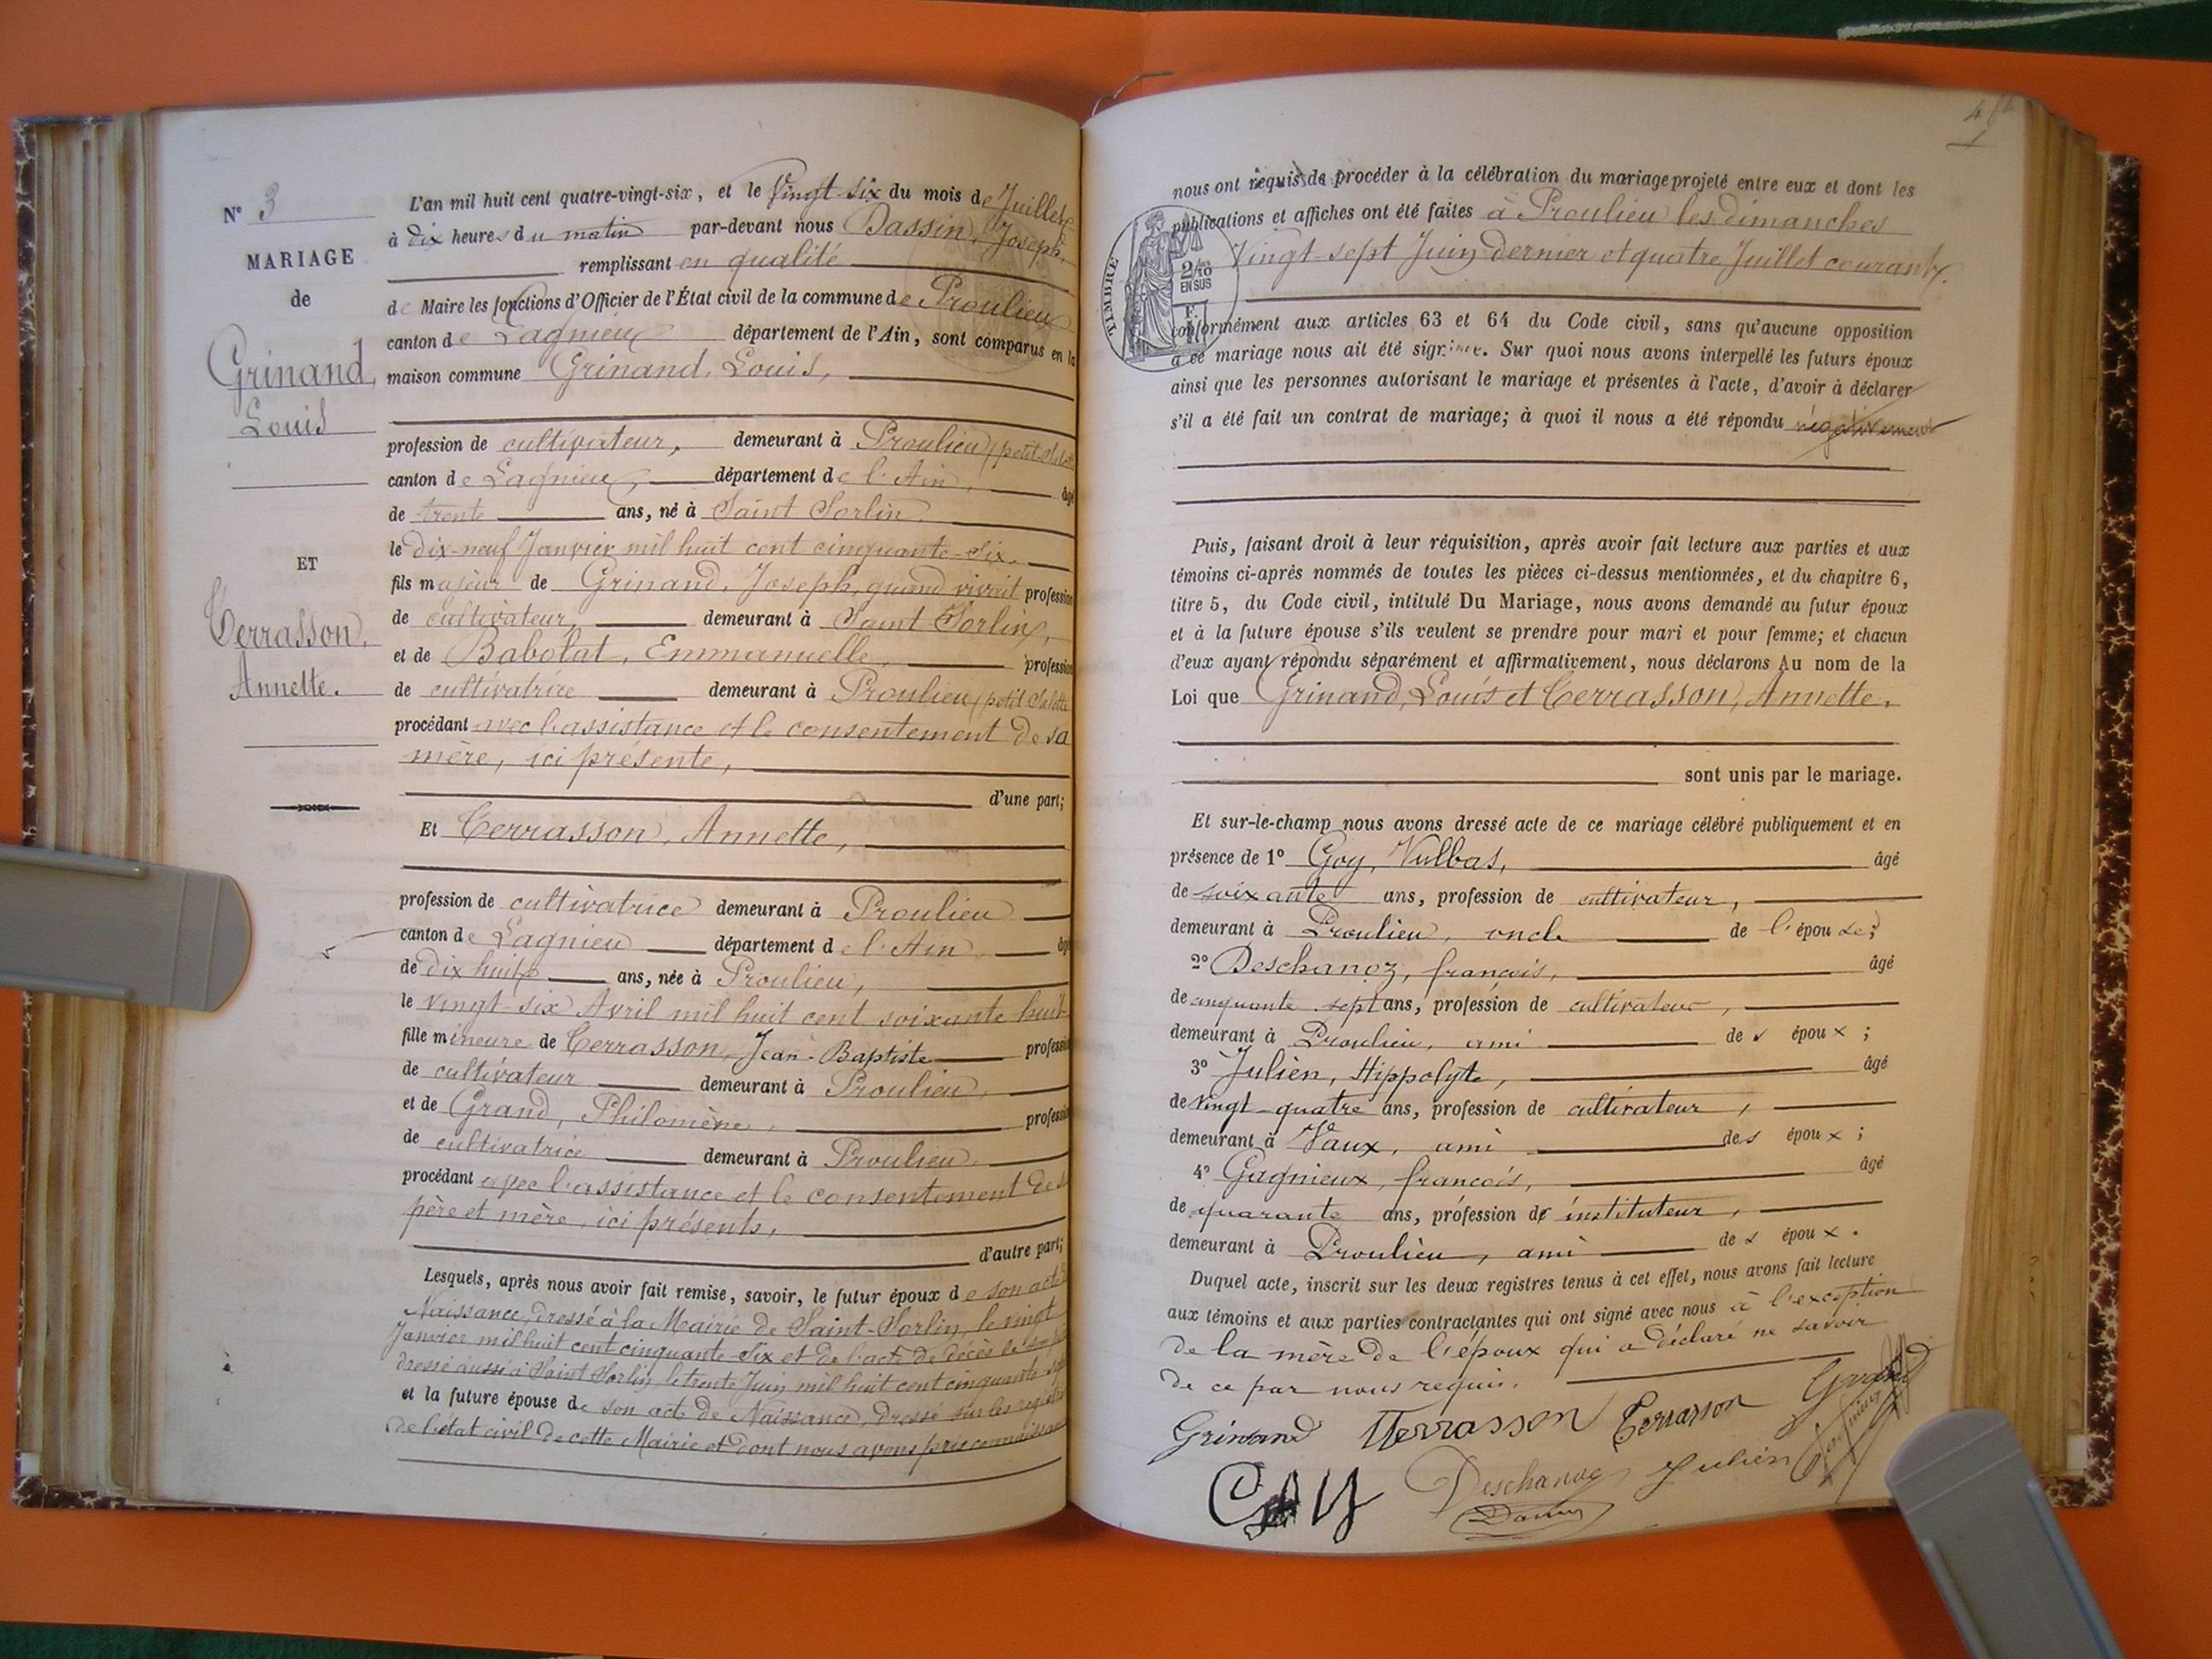 N° 3
MARIAGE
de
Grinand,
Louis
ET
Terrasson,
Annette.
L'an mil huit cent quatre-vingt-six, et le Vingt-six du mois de Juillet
à dix heures du matin par-devant nous Dassin, Joseph,
remplissant en qualité
de Maire les fonctions d'Officier de l'État civil de la commune de Proulieu
canton de Lagnieu département de l'Ain, sont comparus en la
maison commune Grinand, Louis,
profession de cultivateur, demeurant à Proulieu (petit
canton de Lagnieu, département de l'Ain, âgé
de trente ans, né à Saint Sorlin,
le dix-neuf Janvier mil huit cent cinquante-six,
fils majeur de Grinand, Joseph, quand vivait profession
de cultivateur, demeurant à Saint-Sorlin,
et de Babolat, Emmanuelle, profession
de cultivatrice demeurant à Proulieu (petit
procédant avec l'assistance et le consentement de sa
mère, ici présente,
d'une part;
Et Terrasson, Annette,
profession de cultivatrice demeurant à Proulieu
canton de Lagnieu département de l'Ain, âgé
de dix huit ans, née à Proulieu,
le vingt-six Avril mil huit cent soixante huit
fille mineure de Terrasson, Jean-Baptiste profession
de cultivateur demeurant à Proulieu,
et de Grand, Philomène, profession
de cultivatrice demeurant à Proulieu,
procédant avec l'assistance et le consentement de
père et mère, ici présents,
d'autre part;
Lesquels, après nous avoir fait remise, savoir, le futur époux de son acte
Naissance, dressé à la Mairie de Saint-Sorlin, le vingt
Janvier mil huit cent cinquante-six et de l'acte de décès de son
dressé aussi à Saint Sorlin, le trente Juin mil huit cent cinquante
et la future épouse de son acte de Naissance, dressé sur les registres
de l'état civil de cette Mairie et dont nous avons pris connaissance
nous ont requis de procéder à la célébration du mariage projeté entre eux et dont les
publications et affiches ont été faites à Proulieu les dimanches
Vingt-sept Juin dernier et quatre Juillet courant,
TIMBRE
2/10
EN SUS
conformément aux articles 63 et 64 du Code civil, sans qu'aucune opposition
à ce mariage nous ait été signifiée. Sur quoi nous avons interpellé les futurs époux
ainsi que les personnes autorisant le mariage et présentes à l'acte, d'avoir à déclarer
s'il a été fait un contrat de mariage; à quoi il nous a été répondu négativement
Puis, faisant droit à leur réquisition, après avoir fait lecture aux parties et aux
témoins ci-après nommés de toutes les pièces ci-dessus mentionnées, et du chapitre 6,
titre 5, du Code civil, intitulé Du Mariage, nous avons demandé au futur époux
et à la future épouse s'ils veulent se prendre pour mari et pour femme; et chacun
d'eux ayant répondu séparément et affirmativement, nous déclarons Au nom de la
Loi que Grinand, Louis et Terrasson, Annette,
sont unis par le mariage.
Et sur-le-champ nous avons dressé acte de ce mariage célébré publiquement et en
présence de 1° Goy, Vulbas, âgé
de soixante ans, profession de cultivateur,
demeurant à Proulieu, oncle de l'épouse;
2° Deschanoz, françois, âgé
de cinquante sept ans, profession de cultivateur,
demeurant à Proulieu, ami des époux;
3° Julien, Hippolyte, âgé
de vingt-quatre ans, profession de cultivateur,
demeurant à Vaux, ami des époux;
4° Gagnieux, françois, âgé
de quarante ans, profession de instituteur,
demeurant à Proulieu, ami des époux.
Duquel acte, inscrit sur les deux registres tenus à cet effet, nous avons fait lecture
aux témoins et aux parties contractantes qui ont signé avec nous à l'exception
de la mère de l'époux qui a déclaré ne savoir
de ce par nous requis.
Grinand Terrasson Terrasson Grand
Goy Deschanoz Julien